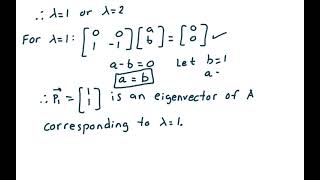 ∴ λ=1 or λ=2
For λ=1: [0 0; 1 -1] [a; b] = [0; 0] ✓
a-b=0 Let b=1
a=b a=
∴ P⃗₁ = [1; 1] is an eigenvector of A
corresponding to λ=1.